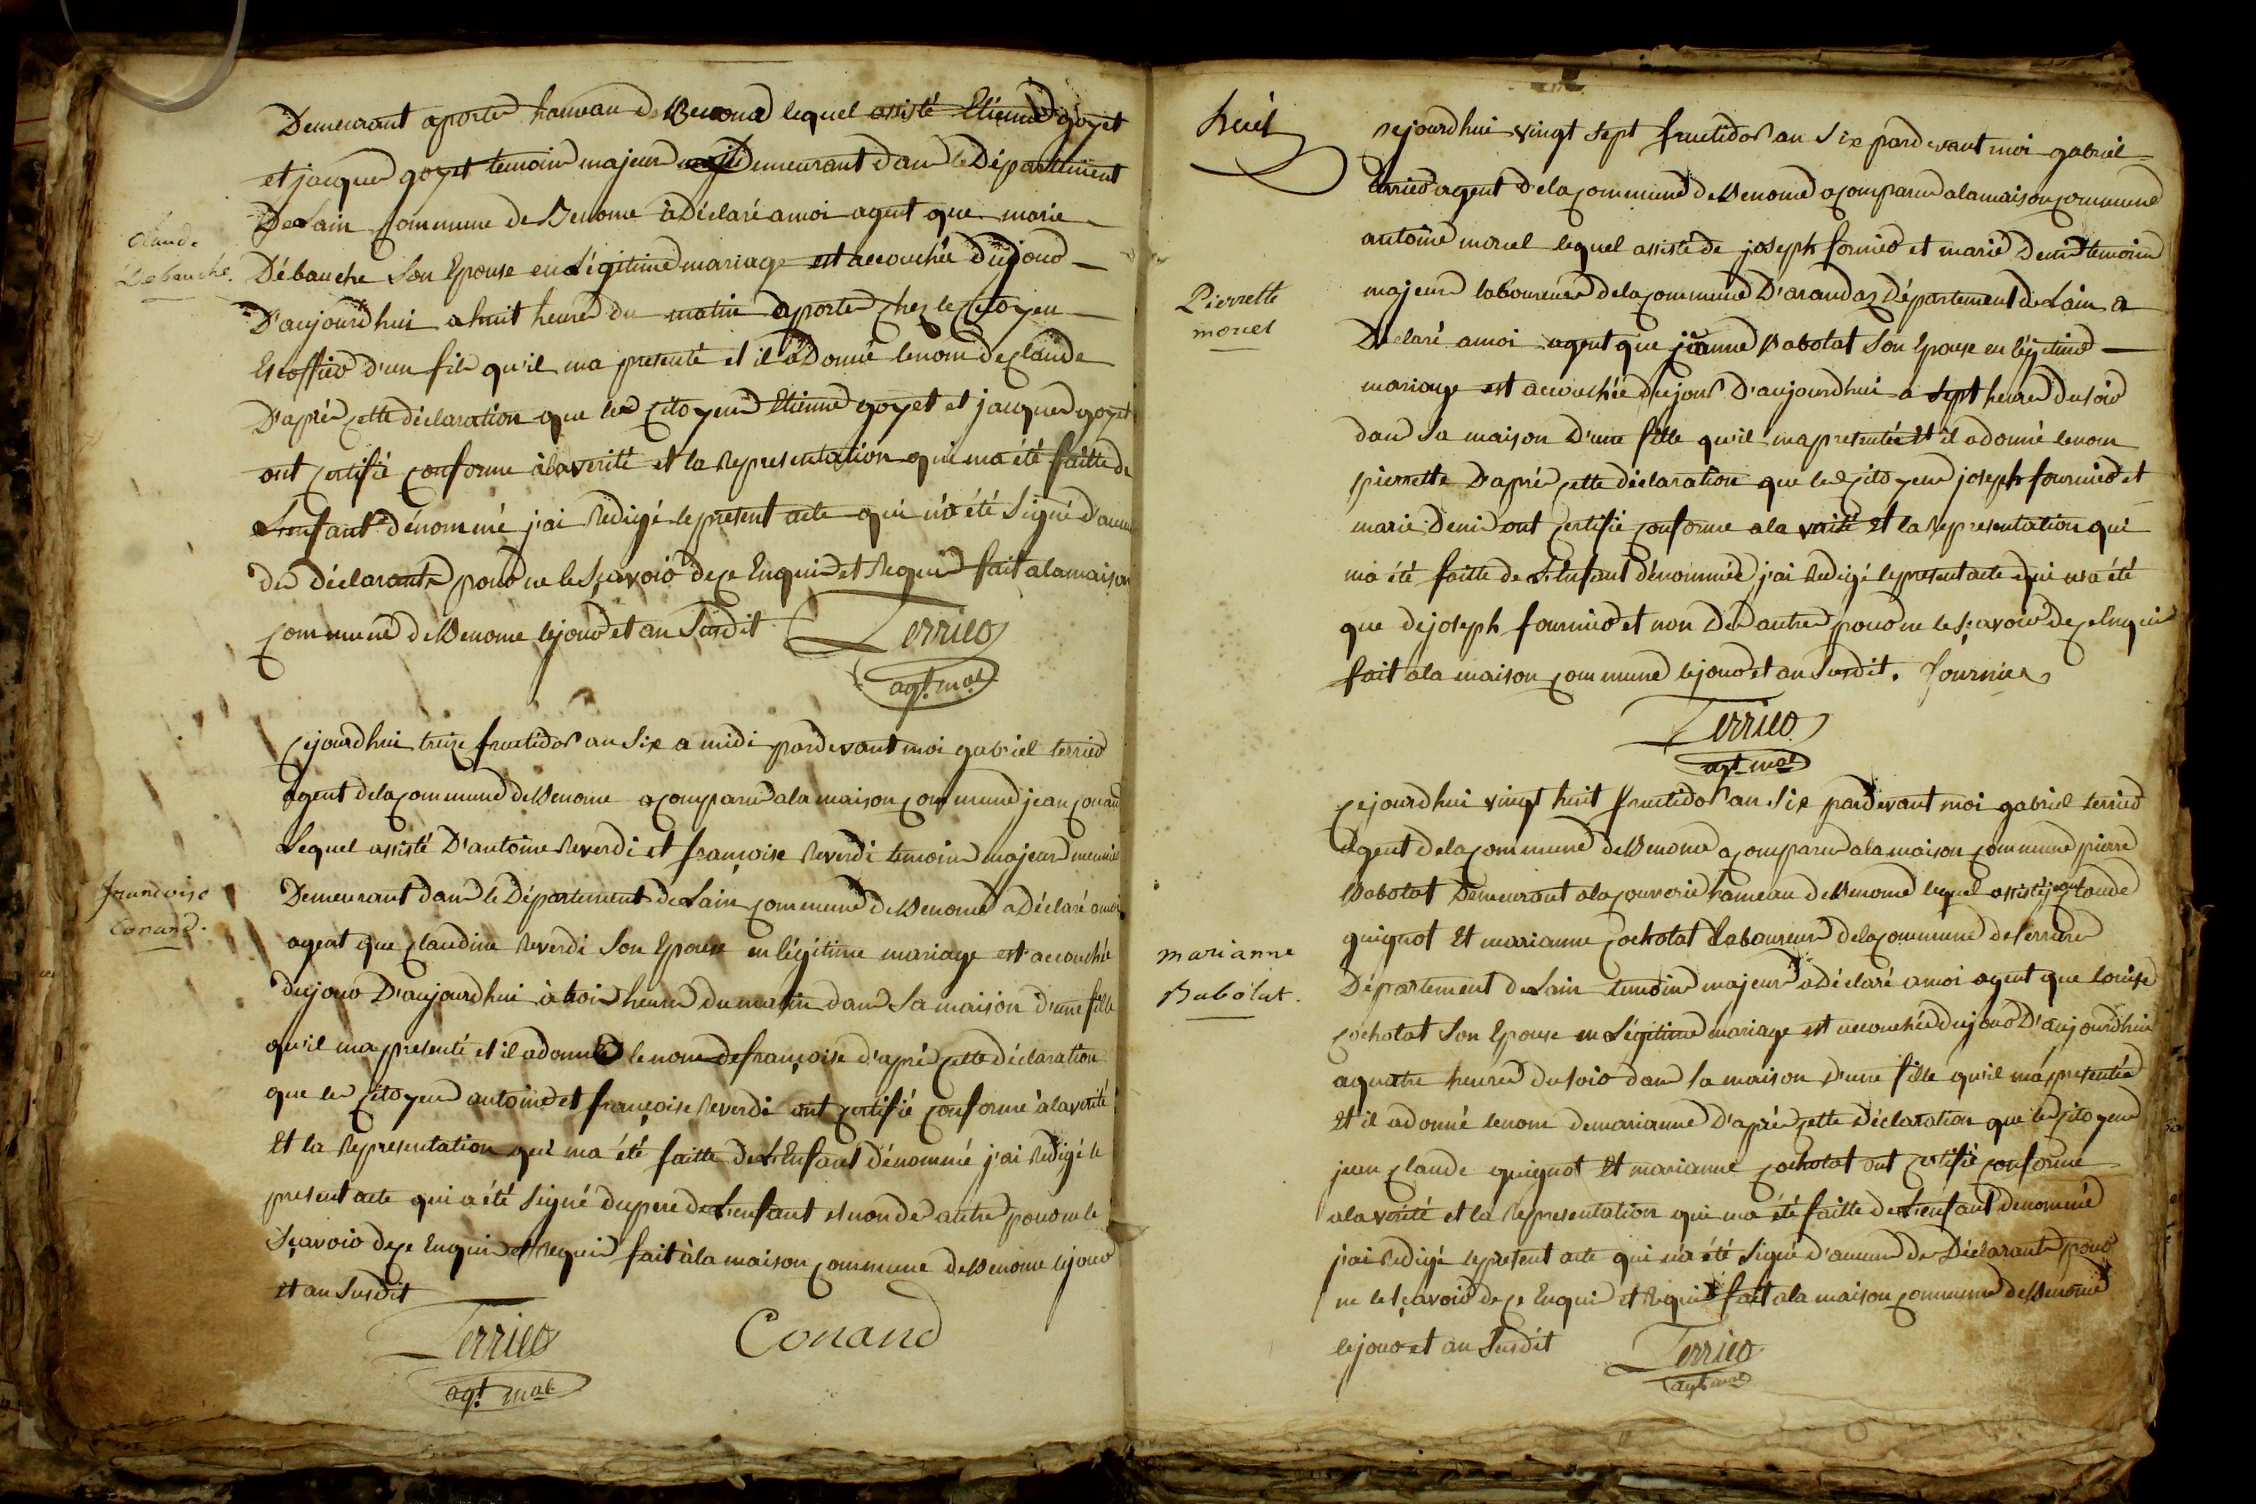 Demeurant a porte hameau de Benonce lequel assisté Etienne goyet
et jacques goyet temoins majeurs demeurant dans le Département
De Lain commune de Benonce à Déclaré a moi agent que marie
Claude
Debauche.
Débauche Son Epouse en Légitime mariage est accouchée du jour
D'aujourd hui a huit heures du matin a porte chez le Citoyen
Escoffier d'un fils qu'il ma presenté et il a Donné le nom de claude
D'apres cette déclaration que les citoyens Etienne goyet et jacques goyet
ont certifié conforme à la verité et la representation qui ma été faitte de
L'enfant dénommé j'ai redigé le present acte qui n'a été Signé d'aucun
des déclarants pour ne le Sçavoir de ce Enquis et Requis fait a la maison
commune de Benonce le jour et an Susdit Terrier
agt. mal
Cejourdhui treize fructidor an Six a midi pardevant moi gabriel terrier
agent de la commune de Benonce a comparu a la maison commune jean conand
Lequel assisté D'antoine Reverdi et françoise Reverdi temoins majeurs
francoise
Conand.
Demeurant dans le Département de Lain commune de Benonce a Déclaré a moi
agent que claudine Reverdi Son Epouse en légitime mariage est accouchée
du jour D'aujourdhui à trois heures du matin dans Sa maison d'une fille
qu'il ma presenté et il a donné le nom de françoise d'après cette déclaration
que les citoyens antoine et françoise Reverdi ont certifié conforme à la verité
Et la Representation qui ma été faitte de L'Enfant dénommé j'ai Redigé le
present acte qui a été Signé du pere de L'enfant et non des autres pour ne le
Sçavoir de ce Enquis et Requis fait à la maison commune de Benonce le jour
et an Susdit
Terrier Conand
agt. mal
huit
Cejourdhui vingt Sept fructidor an Six pardevant moi gabriel
terrier agent de la commune de Benonce a comparu a la maison commune
antoine moriel lequel assisté de joseph fornier et marie Denis temoins
Pierrette
moriel
majeurs laboureurs de la commune D'arandas Département de Lain a
Déclaré a moi agent que jeanne Babolat Son Epouse en légitime
mariage est accouchée du jour D'aujourdhui a Sept heures du Soir
dans Sa maison D'une fille qu'il ma presentée Et il a donné le nom
pierrette D'apres cette déclaration que les citoyens joseph fournier et
marie Denis ont certifié conforme a la verité Et la Representation qui
ma été faitte de L'Enfant dénommée j'ai Redigé le present acte qui na été
que de joseph fournier et non des autres pour ne le Sçavoir de ce Enquis
fait a la maison commune le jour et an Susdit. Fournier
Terrier
agt. mal
Cejourdhui vingt huit fructidor an Six pardevant moi gabriel terrier
agent de la commune de Benonce a comparu a la maison commune pierre
Babolat Demeurant a la hameau de Benonce lequel assisté jean claude
marianne
Babolat.
guignot Et marianne Cochotat Laboureurs de la commune de
Département de Lain temoins majeurs a déclaré a moi agent que Louise
Cochotat Son Epouse en Légitime mariage est accouchée du jour D'aujourdhui
a quatre heures du Soir dans Sa maison d'une fille qu'il ma presentée
Et il a donné le nom de marianne D'après cette Déclaration que les citoyens
jean Claude guignot Et marianne Cochotat ont certifié conforme
a la verité et la Representation qui ma été faitte de L'enfant denommé
j'ai Redigé le present acte qui n'a été Signé d'aucun des Déclarants pour
ne le Sçavoir de ce Enquis et Requis fait a la maison commune de Benonce
le jour et an Susdit Terrier
agt. mal